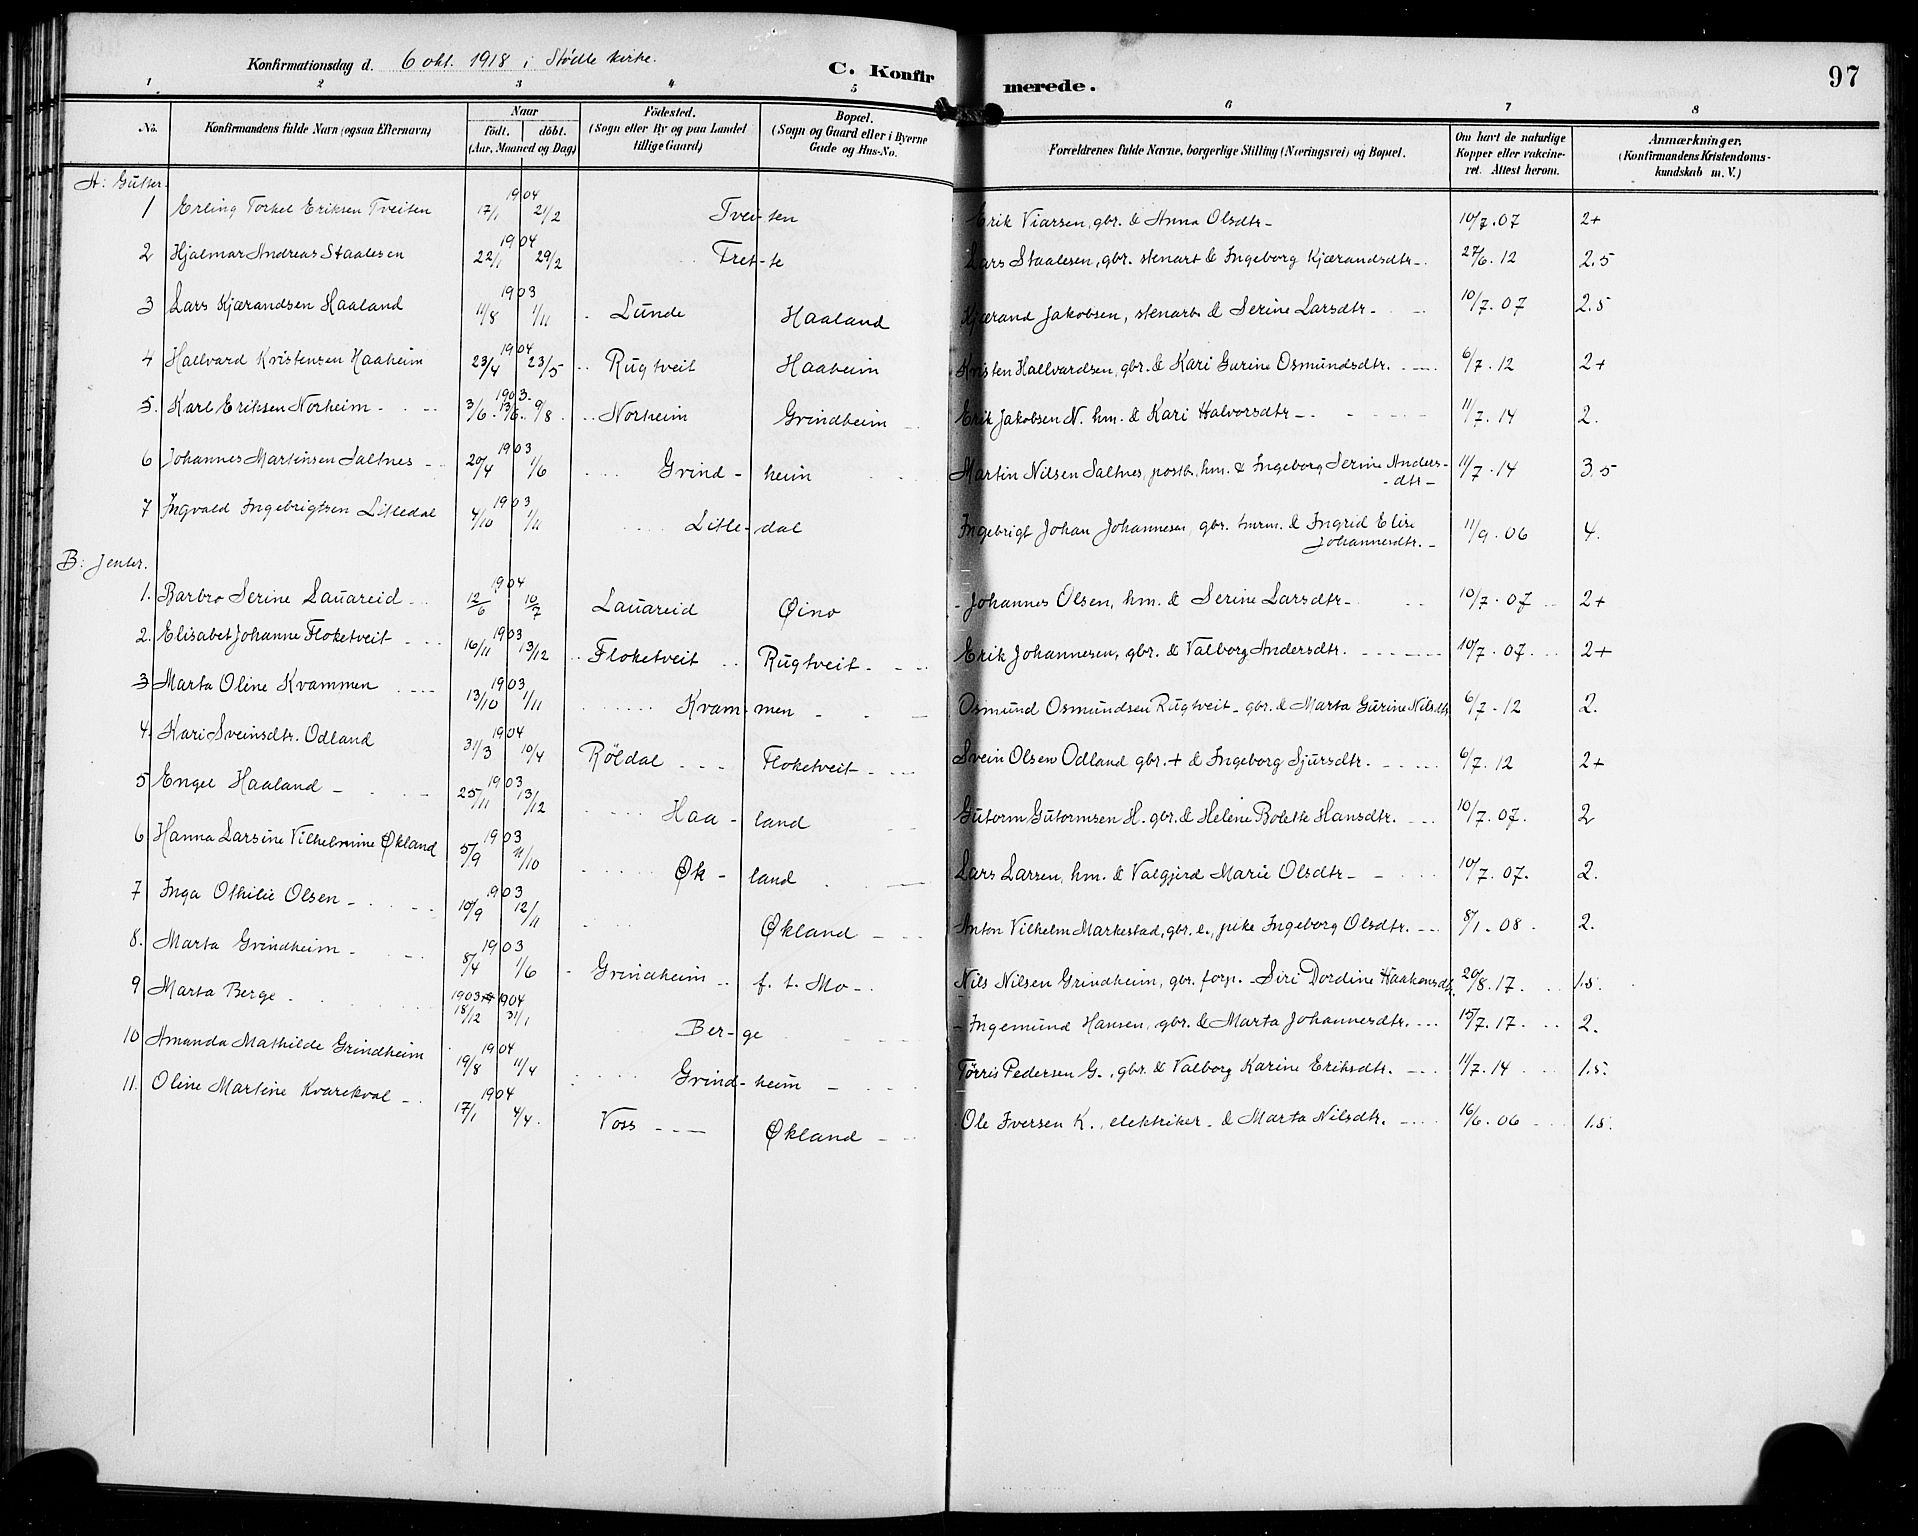 Konfirmationsdag d. 6 okt. 1918 i Stødle kirke.
C. Konfirmerede.
97
1 2 3 4 5 6 7 8
No. Konfirmandens fulde Navn (ogsaa Efternavn) Naar födt. döbt. (Aar, Maaned og Dag) Födested. (Sogn eller By og paa Landet tillige Gaard) Bopæl. (Sogn og Gaard eller i Byerne Gade og Hus-No. Forældrenes fulde Navne, borgerlige Stilling (Næringsvei) og Bopæl. Om havt de naturlige Kopper eller vakcineret. Attest herom. Anmærkninger. (Konfirmandens Kristendomskundskab m. V.)
A: Gutter.
1 Erling Torkel Eriksen Tveiten 1904 17/1 21/2 Tveiten Erik Viarsen, gbr. & Anna Olsdtr - 10/7.07 2+
2 Hjalmar Andreas Staalesen 1904 22/1 29/2 Tret-te Lars Staalesen, gbr. stenarb & Ingeborg Kjærandsdtr -. 27/6.12 2.5
3 Lars Kjærandsen Haaland 1903 11/8 1/11 Lunde Haaland Kjærand Jakobsen, stenarb & Serine Larsdtr - 10/7.07 2.5
4 Hallvard Kristensen Haaheim 1904 23/4 23/5 Rugtveit Haaheim Kristen Hallvardsen, gbr. & Kari Gurine Osmundsdtr. 6/7.12 2+
5. Karl Eriksen Norheim - 1903 3/6. 13/6. 9/8 Norheim Grindheim Erik Jakobsen N. hm. & Kari Halvorsdtr - 11/7.14 2.
6 Johannes Martinsen Saltnes - 1903 20/4 1/6 Grind - heim Martin Nilsen Saltnes, postb, hm. & Ingeborg Serine Anders-
-dtr - 11/7.14 3.5
7 Ingvald Ingebrigtsen Litledal 1903 4/10 1/11 Litle-dal Ingebrigt Johan Johannesen, gbr. tmrm. & Ingrid Elise
Johannesdtr. - 11/9.06 4.
B: Jenter.
1. Barbro Serine Lauareid 1904 12/6 10/7 Lauareid Øino Johannes Olsen, hm. & Serine Larsdtr - 10/7.07 2+
2. Elisabet Johanne Floketveit 1903 16/11 13/12 Floketveit Rugtveit Erik Johannesen, gbr. & Valborg Andersdtr. 10/7.07 2+
3 Marta Oline Kvammen 1903 13/10 1/11 Kvam-men Osmund Osmundsen Rugtveit - gbr. & Marta Gurine Nilsdtr. 6/7.12 2.
4. Kari Sveinsdtr. Odland 1904 31/3 10/4 Röldal Floketveit Svein Olsen Odland gbr. + & Ingeborg Sjursdtr. 6/7.12 2+
5 Engel Haaland - 1903 25/11 13/12 Haa - land Gutorm Gutormsen H. gbr. & Helene Bolette Hansdtr. 10/7.07. 2
6 Hanna Larsine Vilhelmine Økland 1903 5/9 11/10 Øk - land Lars Larsen, hm. & Valgjerd Marie Olsdtr - 10/7.07. 2.
7 Inga Othilie Olsen - 1903 10/9 12/11 Økland Anton Vilhelm Markestad, gbr. e., pike Ingeborg Olsdtr. 8/1.08 2.
8. Marta Grindheim - 1903 8/4 1/6 Grindheim f. t. Mo Nils Nilsen Grindheim, gbr. forp. - Siri Dordine Haakonsdtr. 20/8.17 1.5.
9 Marta Berge 1903 1904 18/12 31/1 Ber-ge Ingemund Hansen, gbr. & Marta Johannesdtr. 15/7.17. 2.
10 Amanda Mathilde Grindheim 1904 19/8 11/4 Grind-heim Tørris Pedersen G., gbr. & Valborg Karine Eriksdtr. 11/7.14 1.5.
11. Oline Martine Kvarekval - 1904 17/1 4/4. Voss Økland Ole Iversen K., elektriker - & Marta Nilsdtr. 16/6.06 1.5.